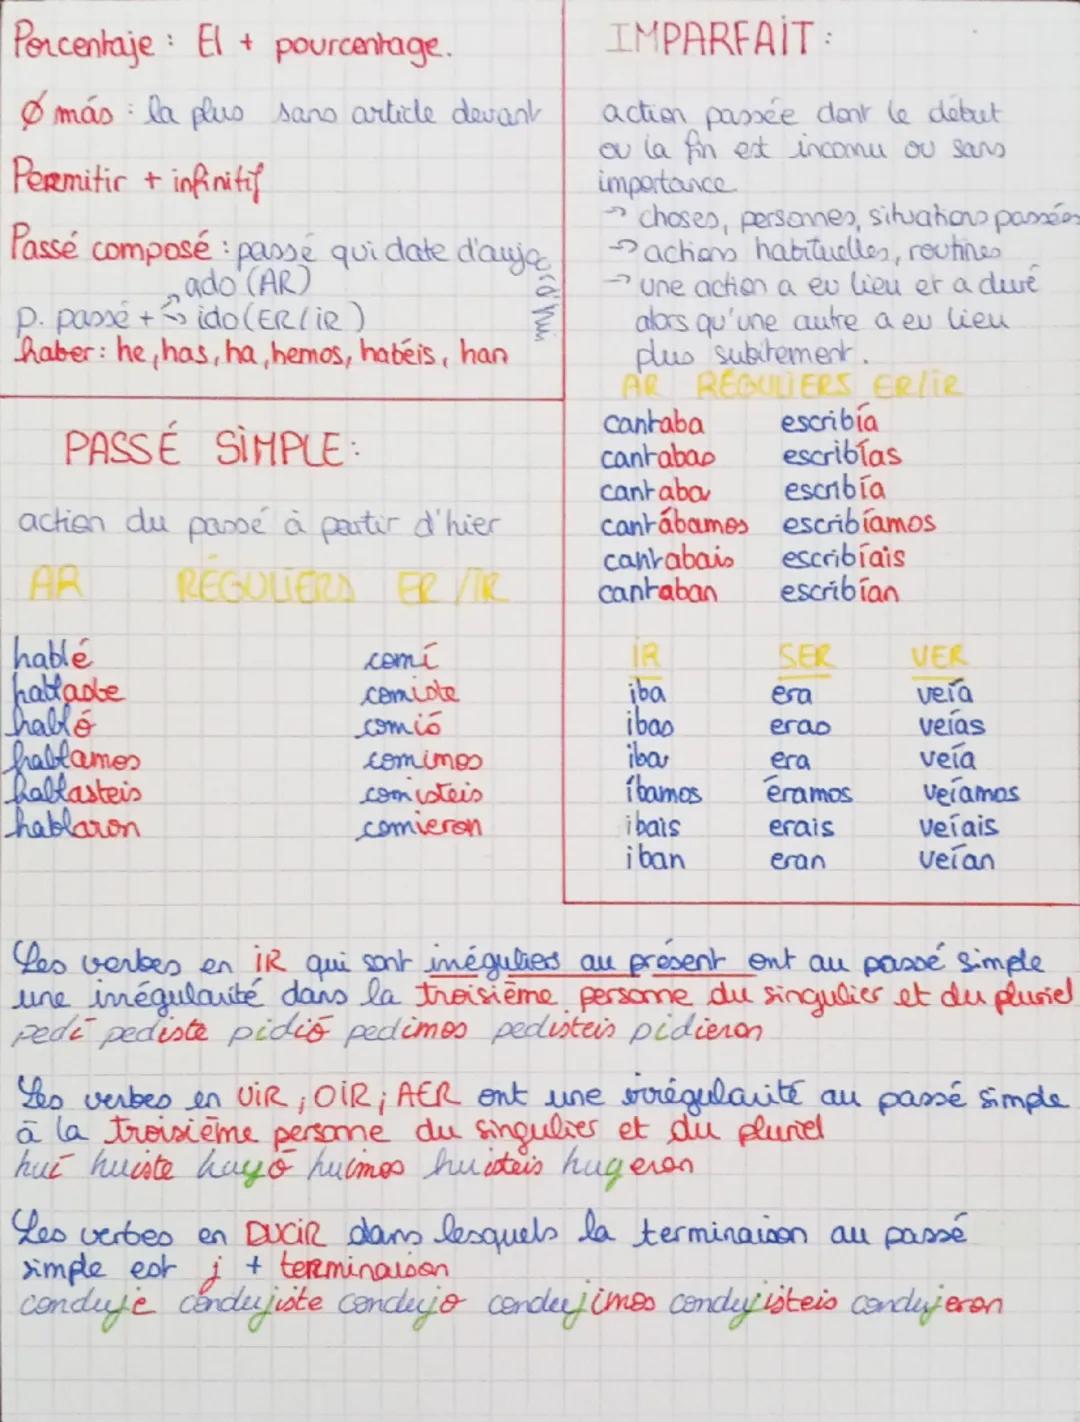 Porcentaje : El + pourcentage.
Ø más : la plus sans article devant
Permitir + infinitif
Passé composé : passé qui date d'aujourd'hui
ado (AR)
p. passé + → ido (ER/iR)
haber : he, has, ha, hemos, habéis, han
PASSÉ SiMPLE :
action du passé à partir d'hier
AR RÉGULIERS ER/IR
hablé comí
hablaste comiste
habló comió
hablamos comimos
hablasteis comisteis
hablaron comieron
IMPARFAiT :
action passée dont le début
ou la fin est inconnu ou sans
importance
→ choses, personnes, situations passées
→ actions habituelles, routines
→ une action a eu lieu et a duré
alors qu'une autre a eu lieu
plus subitement.
AR RÉGULIERS ER/iR
cantaba escribía
cantabas escribías
cantaba escribía
cantábamos escribíamos
cantabais escribíais
cantaban escribían
iR SER VER
iba era veía
ibas eras veías
iba era veía
íbamos éramos veíamos
ibais erais veíais
iban eran veían
Les verbes en iR qui sont irréguliers au présent ont au passé simple
une irrégularité dans la troisième personne du singulier et du pluriel
pedí pediste pidió pedimos pedisteis pidieron
Les verbes en UiR ; OiR ; AER ont une irrégularité au passé simple
à la troisième personne du singulier et du pluriel
huí huiste huyó huimos huisteis huyeron
Les verbes en DUCiR dans lesquels la terminaison au passé
simple est j + terminaison
conduje condujiste condujo condujimos condujisteis condujeron